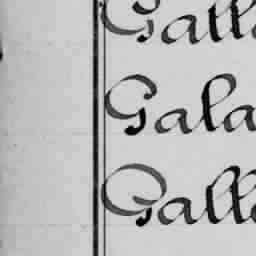 Galla
Gala
Galla